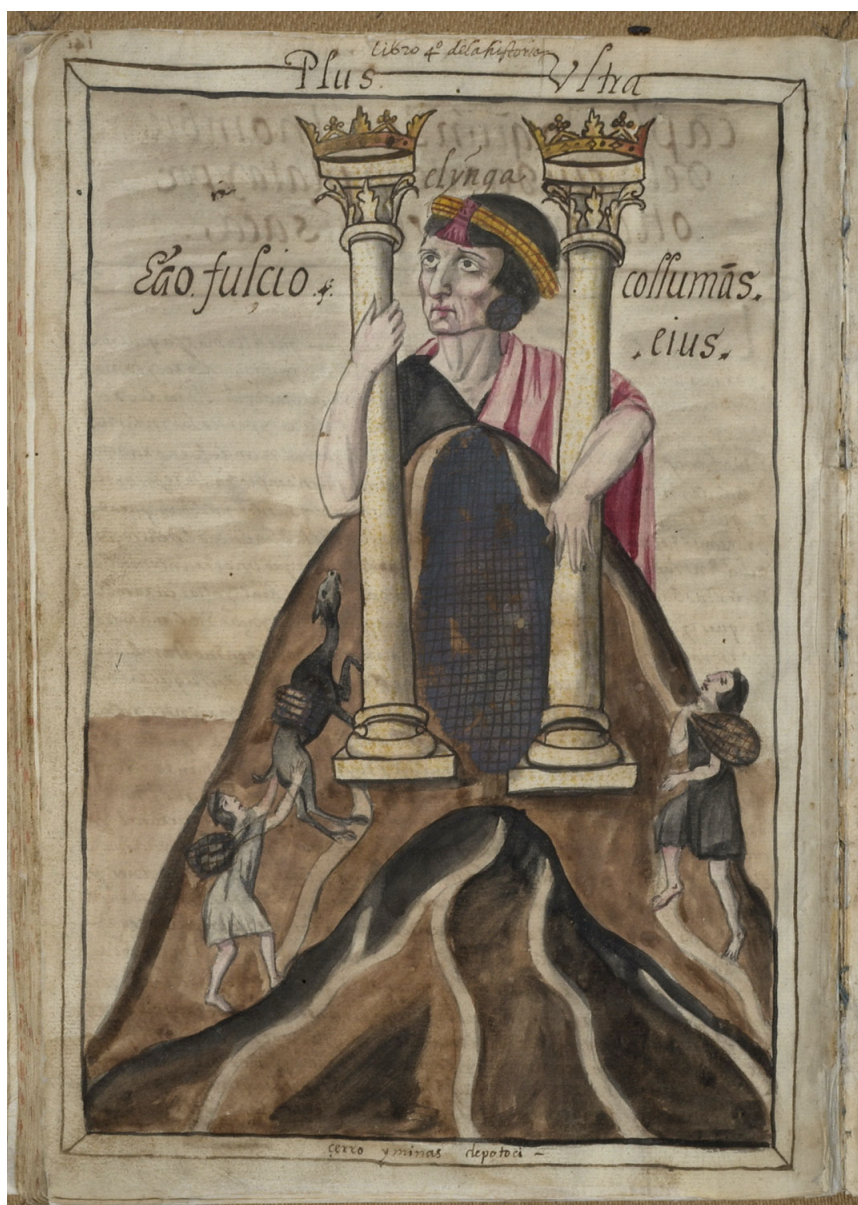 141
Libro 4º de la historia
Plus Vltra
elynga
Ego. fulcio. collumās.
eius.
çerro y minas de potoci